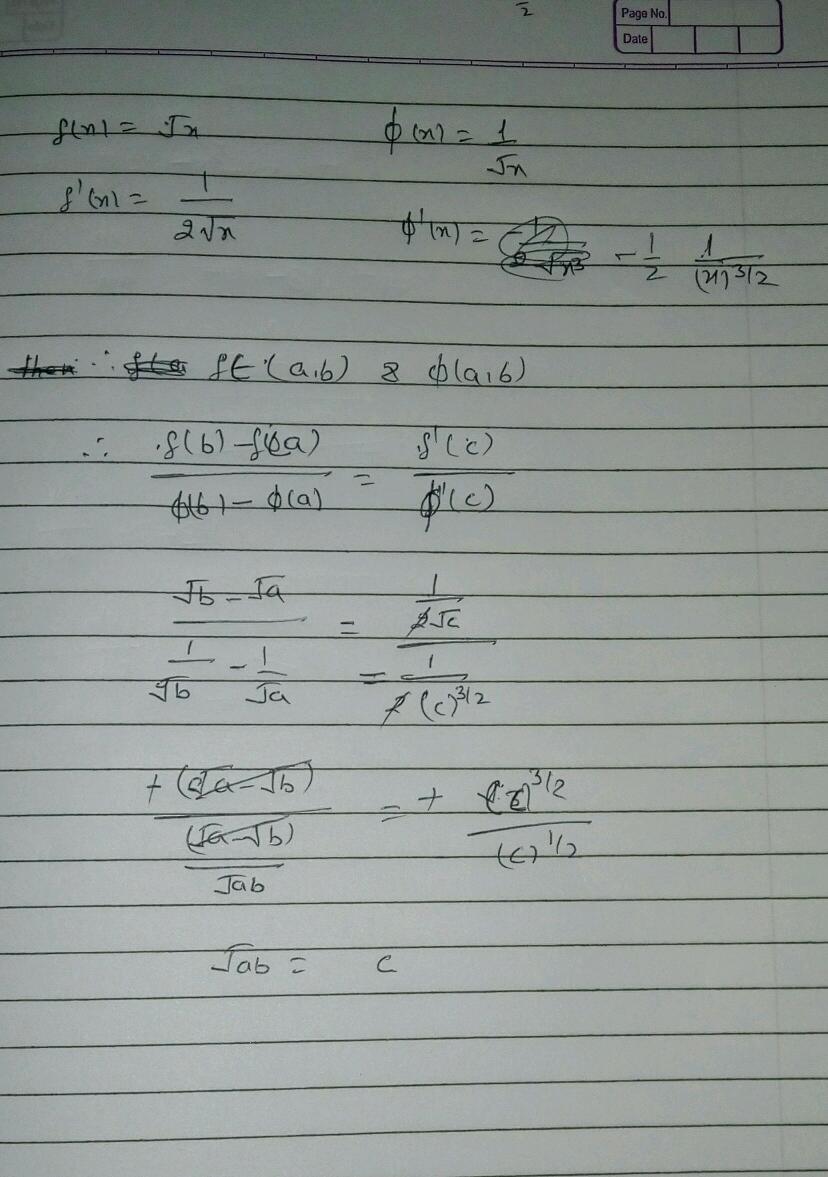 2
Page No.
Date
f(x) = √x    ϕ(x) = 1/√x
f'(x) = 1/(2√x)    ϕ'(x) = -1/2 1/(x)^3/2
∴ f ∈ (a,b) & ϕ(a,b)
∴ (f(b) - f(a))/(ϕ(b) - ϕ(a)) = f'(c)/ϕ'(c)
(√b - √a)/(1/√b - 1/√a) = = (1/(2√c))/(1/(2(c)^3/2))
+(√a - √b)/((√a - √b)/√ab) = + (c)^3/2/(c)^1/2
√ab = c